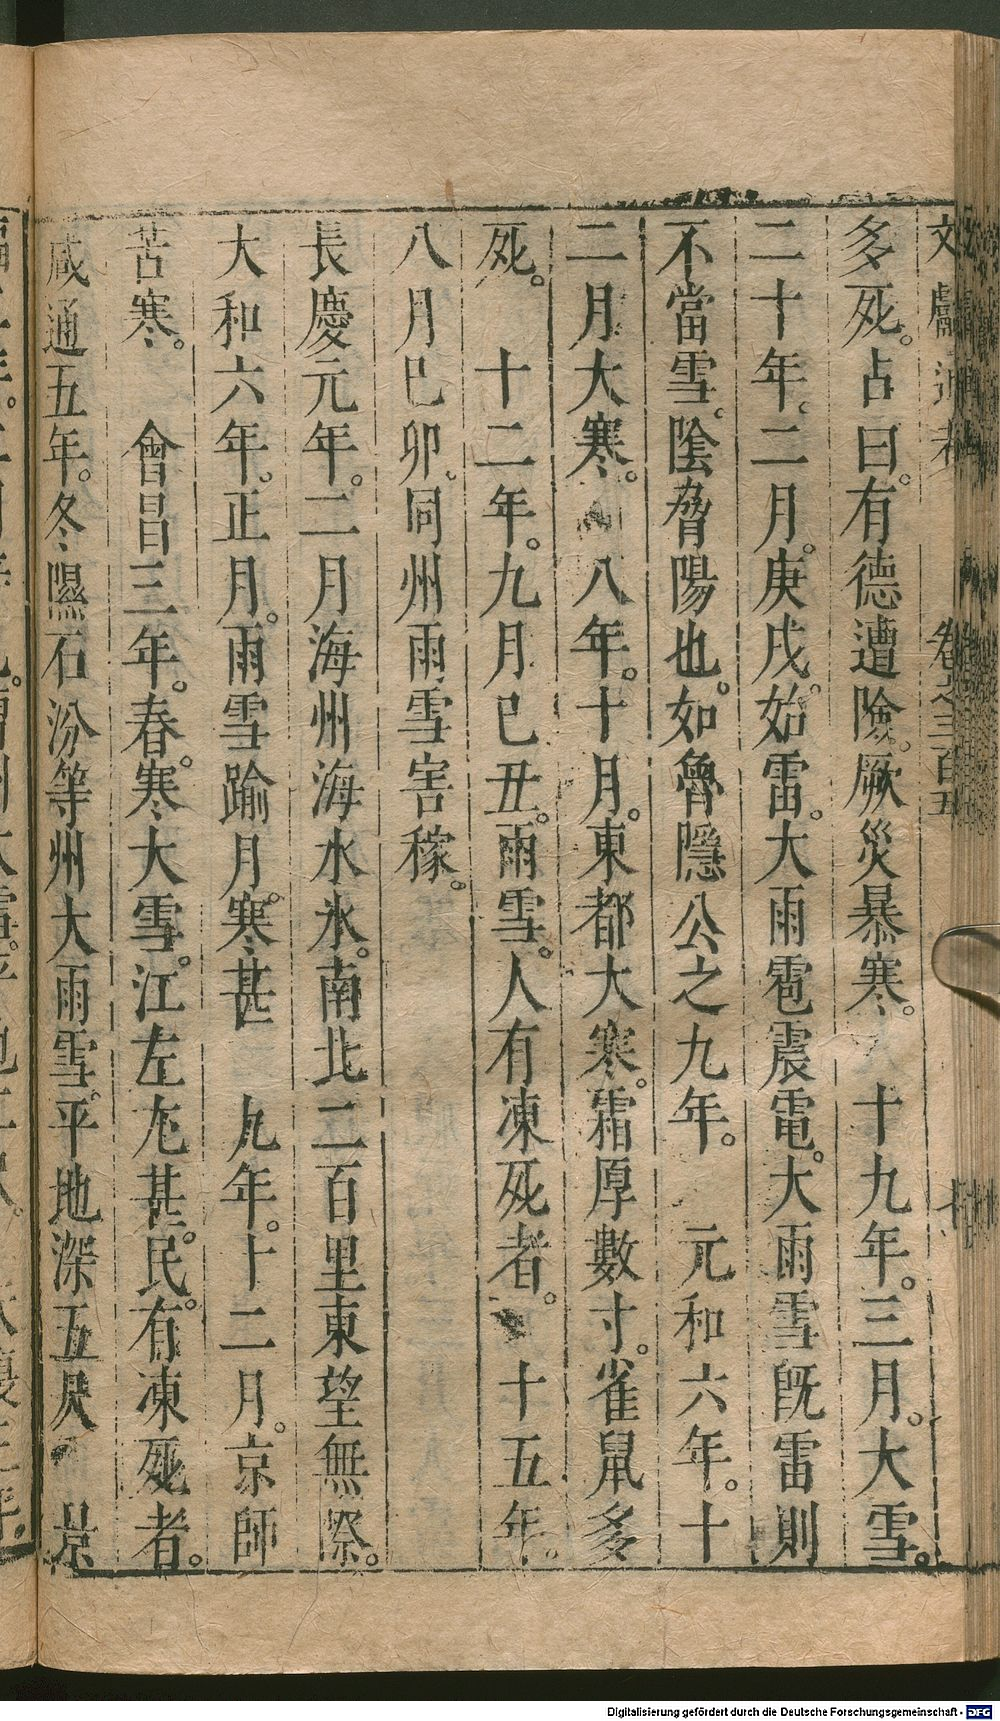 文獻通考 卷之三百五
多死。占曰。有德遭險。厥災暴寒。 十九年。三月。大雪。
二十年。二月。庚戌。始雷。大雨雹震電。大雨雪旣雷則
不當雪。陰脅陽也。如魯隱公之九年。 元和六年。十
二月大寒。 八年。十月。東都大寒。霜厚數寸。雀鼠多
死。 十二年。九月已丑。雨雪。人有凍死者。 十五年。
八月已卯。同州雨雪害稼。
長慶元年。二月海州海水氷。南北二百里東望無際。
大和六年。正月。雨雪踰月。寒甚 九年。十二月。京師
苦寒。 會昌三年。春。寒大雪。江左尤甚。民。有凍死者。
咸通五年。冬隰石汾等州大雨雪。平地深五尺 景
Digitalisierung gefördert durch die Deutsche Forschungsgemeinschaft - DFG